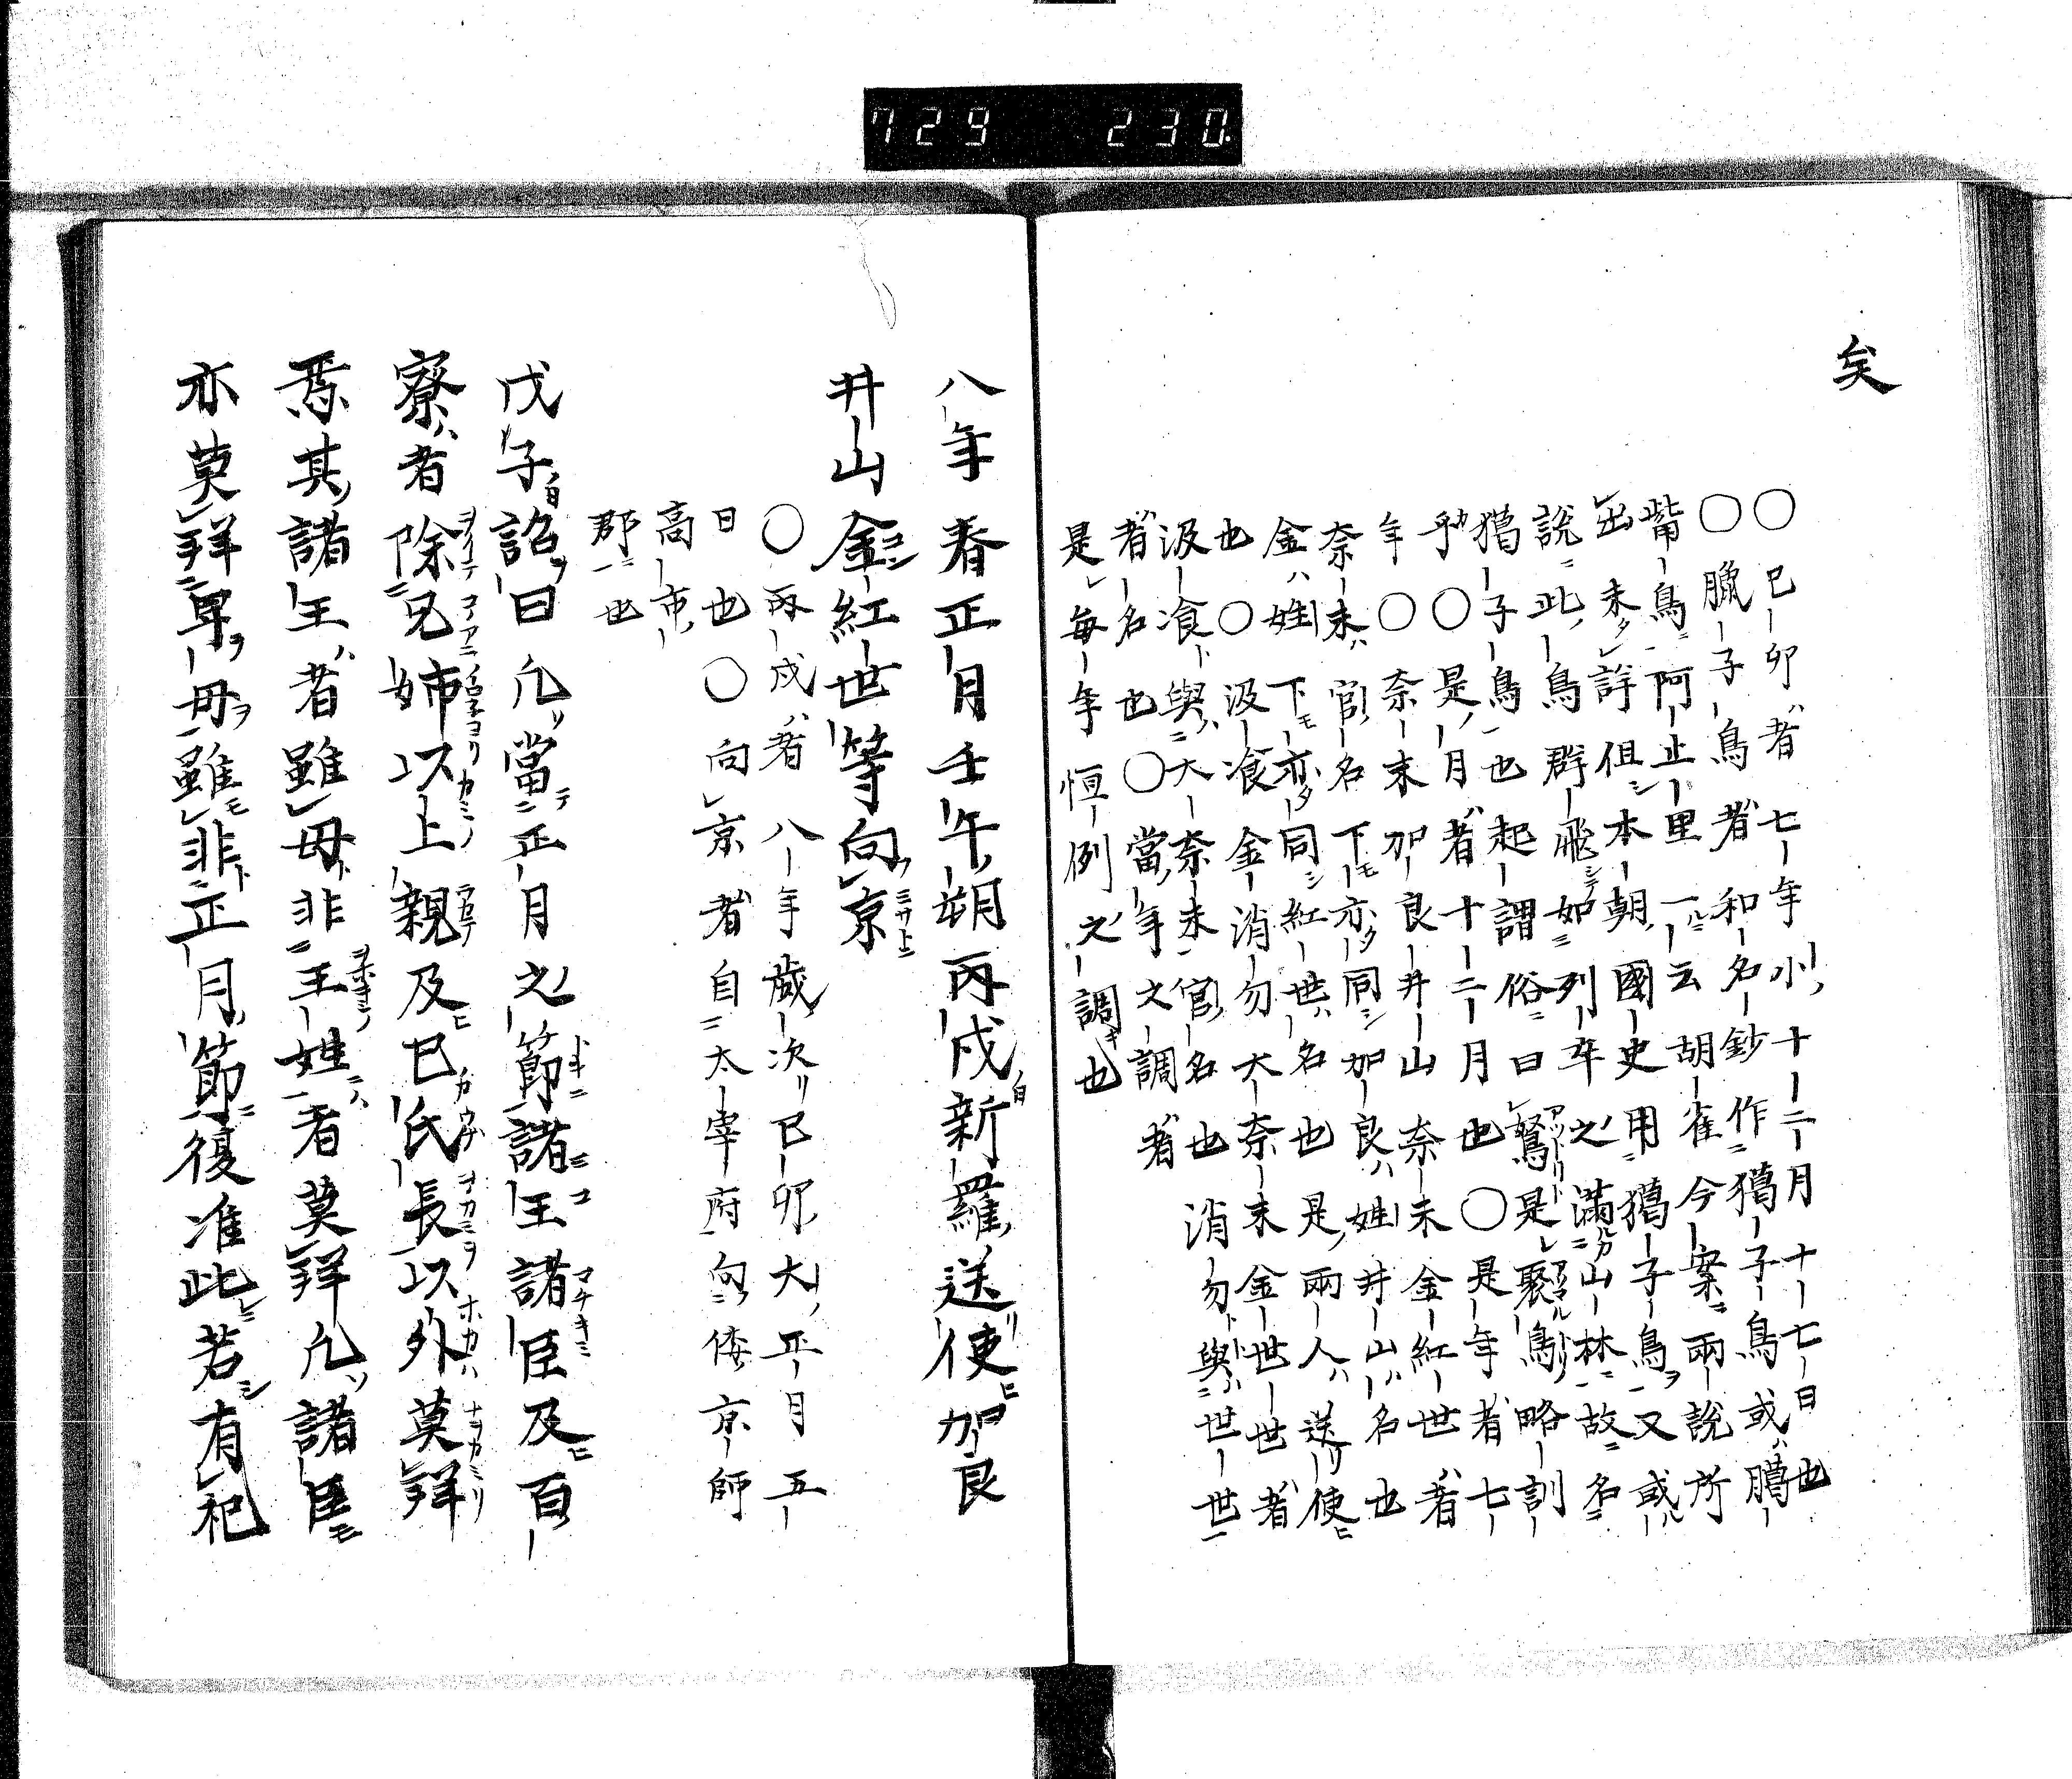 729 230
矣
○巳卯者七年小十二月十七日也
○臘子鳥者和名鈔作獦子鳥或臈
觜鳥阿止里一云胡雀今案兩說所
出未詳但本朝國史用獦子鳥又或
說此鳥群飛如列卒之滿山林故名
獦子鳥也起謂俗曰鵹是聚鳥略訓
乎○是月者十二月也○是年者七
年○奈末加良井山奈末金紅世者
奈末官名下亦同加良姓井山名也
金姓下亦同紅世名也是兩人送使
也○汲飡金消勿大奈末金世世者
汲飡與大奈末官名也消勿與世世
者名也○當年之調者
是每年恒例之調也
八年春正月壬午朔丙戌新羅送使加良
井山金紅世等向京
○丙戌者八年歲次巳卯大正月五
日也○向京者自太宰府向倭京師
高市
郡也
戊子詔曰凡當正月之節諸王諸臣及百
寮者除兄姉以上親及巳氏長以外莫拜
焉其諸王者雖母非王姓者莫拜凡諸臣
亦莫拜卑母雖非正月節復准此若有犯